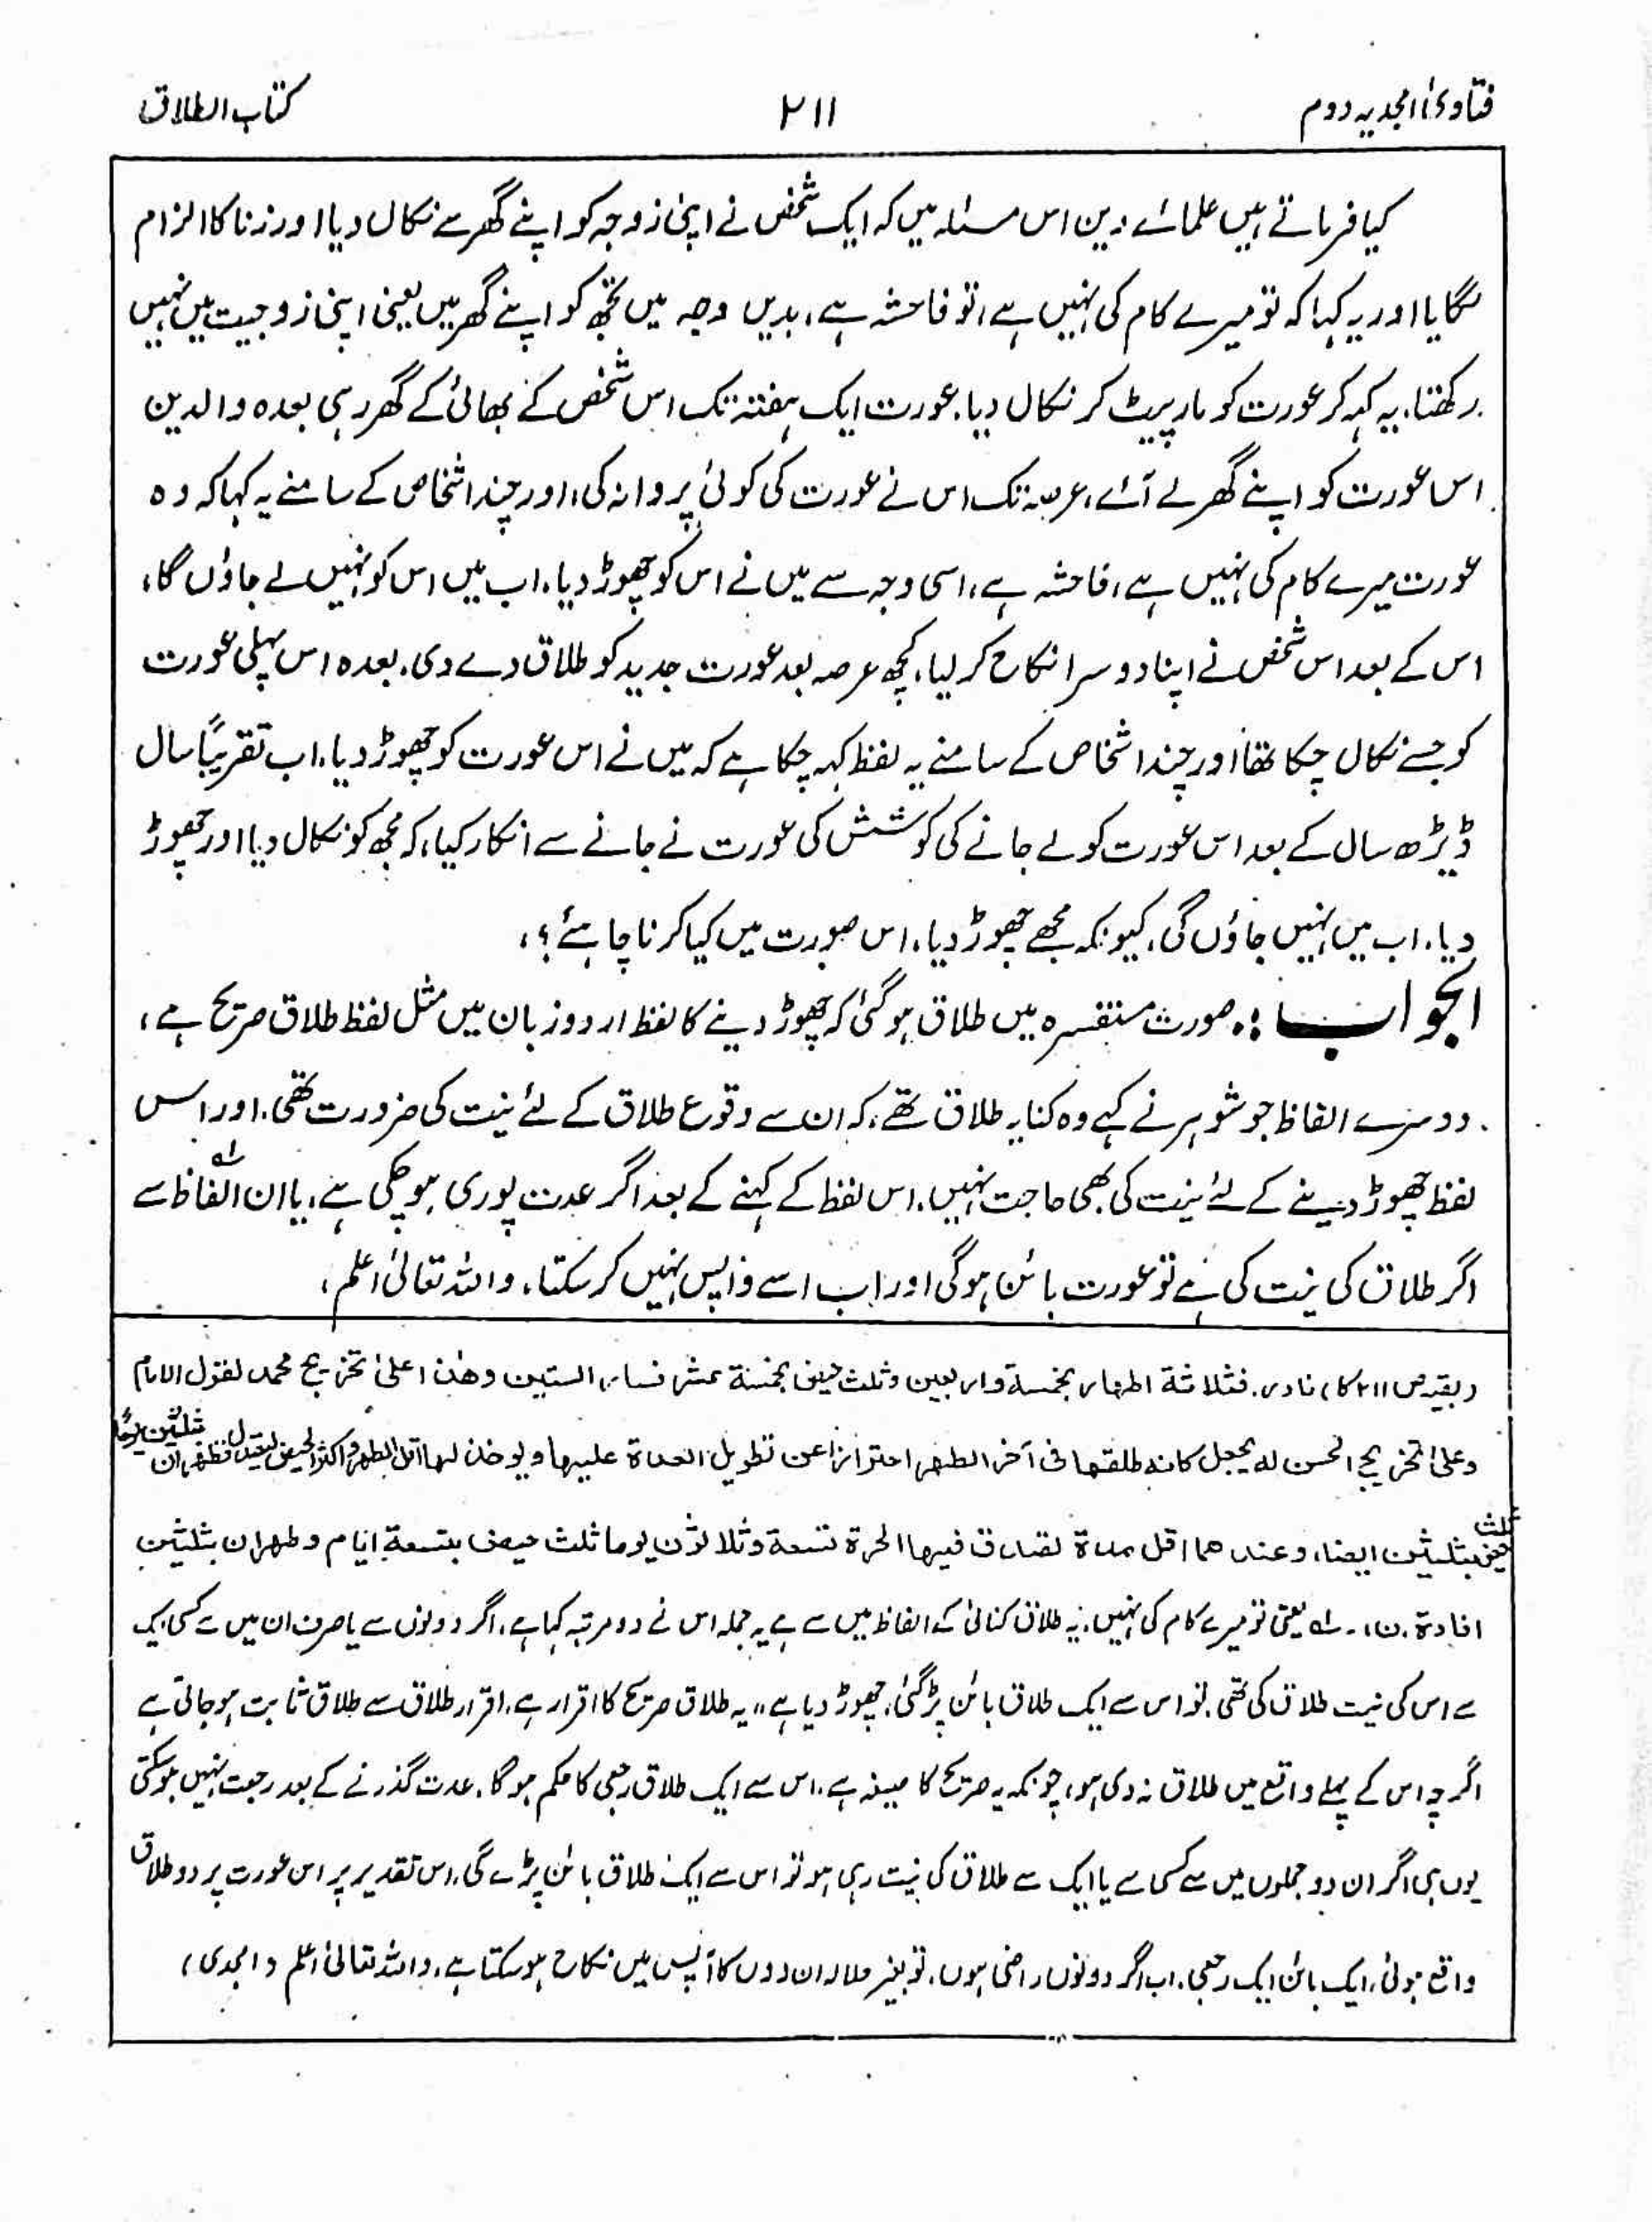 فتاویٰ امجدیہ دوم
۲۱۱
کتاب الطلاق
کیا فرماتے ہیں علمائے دین اس مسئلہ میں کہ ایک شخص نے اپنی زوجہ کو اپنے گھر سے نکال دیا اور زنا کا الزام
لگایا اور یہ کہا کہ تو میرے کام کی نہیں ہے، تو فاحشہ ہے، بدیں وجہ میں تجھ کو اپنے گھر میں یعنی اپنی زوجیت میں نہیں
رکھتا، یہ کہہ کر عورت کو مار پیٹ کر نکال دیا، عورت ایک ہفتہ تک اس شخص کے بھائی کے گھر رہی بعدہ والدین
اس عورت کو اپنے گھر لے آئے، عرصہ تک اس نے عورت کی کوئی پروا نہ کی، اور چند اشخاص کے سامنے یہ کہا کہ وہ
عورت میرے کام کی نہیں ہے، فاحشہ ہے، اسی وجہ سے میں نے اس کو چھوڑ دیا، اب میں اس کو نہیں لے جاؤں گا،
اس کے بعد اس شخص نے اپنا دوسرا نکاح کر لیا، کچھ عرصہ بعد عورت جدید کو طلاق دے دی، بعدہ اس پہلی عورت
کو جسے نکال چکا تھا اور چند اشخاص کے سامنے یہ لفظ کہہ چکا ہے کہ میں نے اس عورت کو چھوڑ دیا، اب تقریباً سال
ڈیڑھ سال کے بعد اس عورت کو لے جانے کی کوشش کی عورت نے جانے سے انکار کیا، کہ مجھ کو نکال دیا اور چھوڑ
دیا، اب میں نہیں جاؤں گی، کیونکہ مجھے چھوڑ دیا، اس صورت میں کیا کرنا چاہئے؟،
الجواب :۔ صورت مستفسرہ میں طلاق ہو گئی کہ چھوڑ دینے کا لفظ اردو زبان میں مثل لفظ طلاق صریح ہے،
دوسرے الفاظ جو شوہر نے کہے وہ کنایہ طلاق تھے، کہ ان سے وقوع طلاق کے لئے نیت کی ضرورت تھی، اور اس
لفظ چھوڑ دینے کے لئے نیت کی بھی حاجت نہیں، اس لفظ کے کہنے کے بعد اگر عدت پوری ہو چکی ہے، یا ان الفاظ سے
اگر طلاق کی نیت کی ہے تو عورت بائن ہوگی اور اب اسے واپس نہیں کر سکتا، واللہ تعالیٰ اعلم،
(بقیہ ص ۲۱۱ کا) فثلاثة اطهار بخمسة واربعين وثلث حيض بخمسة عشر فسار الستين وهذا على تخريج محمد لقول الامام
وعلى تخريج الحسن له يجعل كانه طلقها فی آخر الطهر احترازا عن تطويل العدة عليها ويوخذ لها اقل الطهر واكثر الحيض ليعتدل فطهران بثلثين يوما
وثلث حيض بثلثين ايضا، وعندهما اقل مدة تصدق فيها الحرة تسعة وثلاثون يوما ثلث حيض بتسعة ايام وطهران بثلثين
افادة ن، ۔ لہ یعنی تو میرے کام کی نہیں، یہ طلاق کنائی کے الفاظ میں سے ہے یہ جملہ اس نے دو مرتبہ کہا ہے، اگر دونوں سے یا صرف ان میں سے کسی ایک
سے اس کی نیت طلاق کی تھی، تو اس سے ایک طلاق بائن پڑ گئی، چھوڑ دیا ہے،، یہ طلاق صریح کا اقرار ہے، اقرار طلاق سے طلاق ثابت ہو جاتی ہے
اگرچہ اس کے پہلے واقع میں طلاق نہ دی ہو، چونکہ یہ صریح کا صیغہ ہے، اس سے ایک طلاق رجعی کا حکم ہوگا، عدت گذرنے کے بعد رجعت نہیں ہو سکتی
یوں ہی اگر ان دو جملوں میں سے کسی سے یا ایک سے طلاق کی نیت رہی ہو تو اس سے ایک طلاق بائن پڑے گی، اس تقدیر پر اس عورت پر دو طلاق
واقع ہوئی، ایک بائن ایک رجعی، اب اگر دونوں راضی ہوں، تو بغیر حلالہ ان دوں کا آپس میں نکاح ہو سکتا ہے، واللہ تعالیٰ اعلم (امجدی)